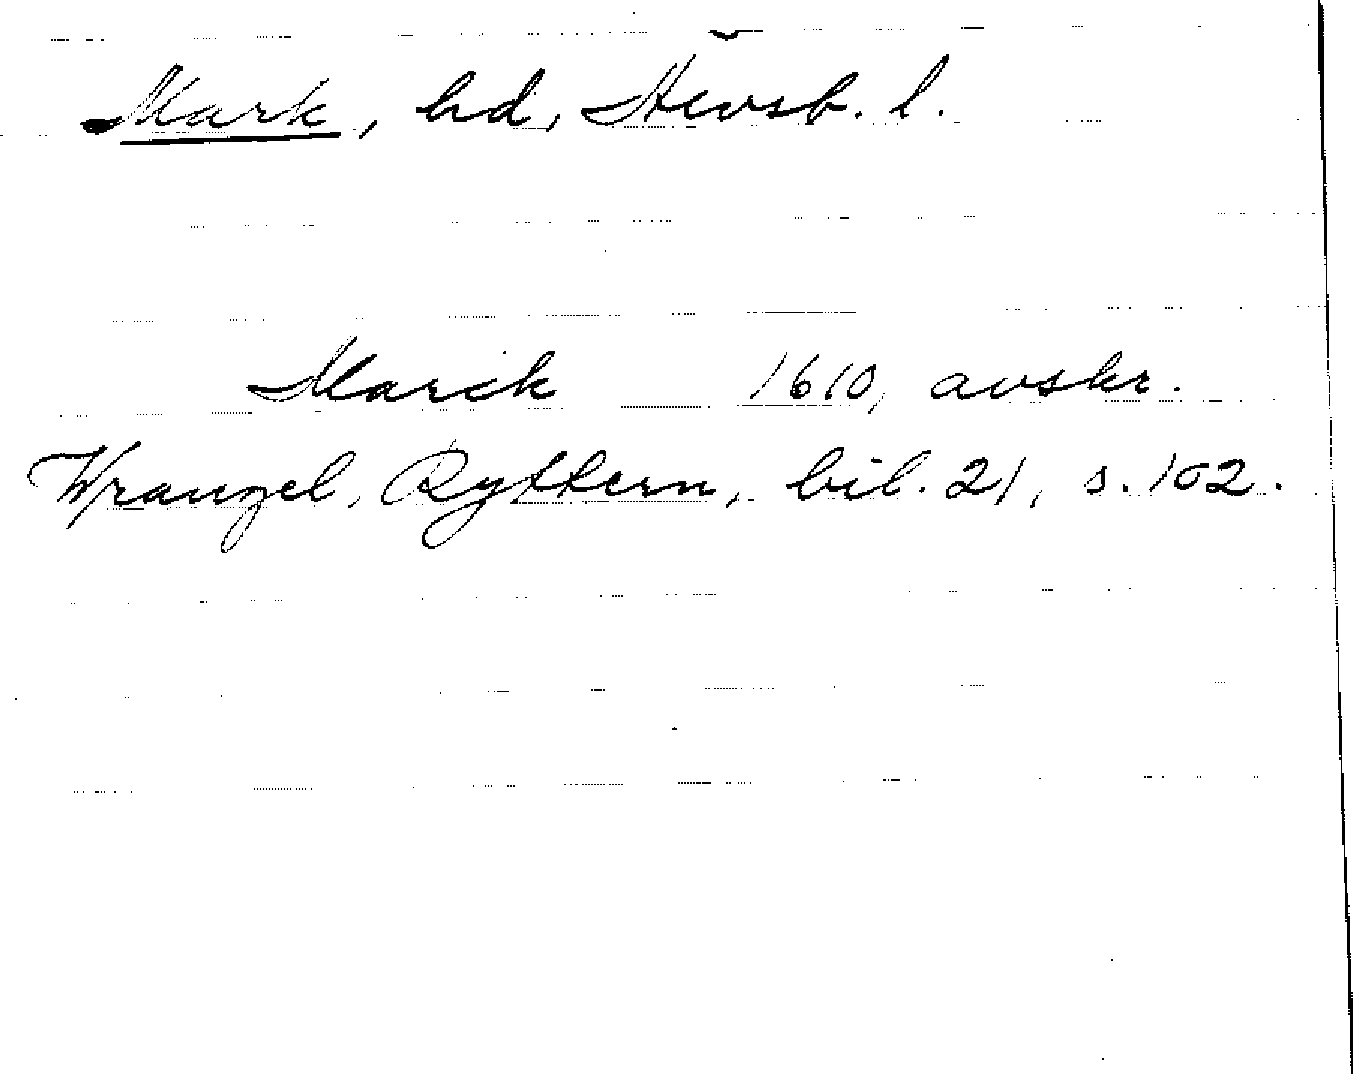 Mark, hd, Älvsb. l.
Marck 1610, avskr.
Wrangel, Ryttern, bil. 21, s. 102.